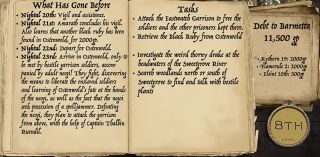 What Has Gone Before
• Nightal 20th: Vigil and assistance.
• Nightal 21st: Amarath concludes his vigil. Also learns that another black ruby has been found in Ostenwold, for 2000gp.
• Nightal 22nd: Depart for Ostenwold.
• Nightal 23rd: Arrive in Ostenwold, only to be met by hostile garrison soldiers, accompanied by adult nogi! They fight, discovering the means to liberate the enslaved soldiers and learning of Ostenwold's fate at the hands of the nogi, as well as the fact that the nogi seek possession of a spelljammer. Defeating the nogi, they plan to attack the garrison from above, with the help of Captain Thallin
Tasks
• Attack the Eastwatch Garrison to free the soldiers and the other prisoners kept there.
• Retrieve the Black Ruby from Ostenwold.
• Investigate the weird thorny dryke at the headwaters of the Sweetgrove River
• Search woodlands north or south of Sweetgrove to find and talk with hostile plants
Debt to Barnetta
11,500
gp
• Kythorn 19: 1000gp
• Flamerule 2: 2000gp
• Eleint 10th: 500gp
8TH
LEVEL